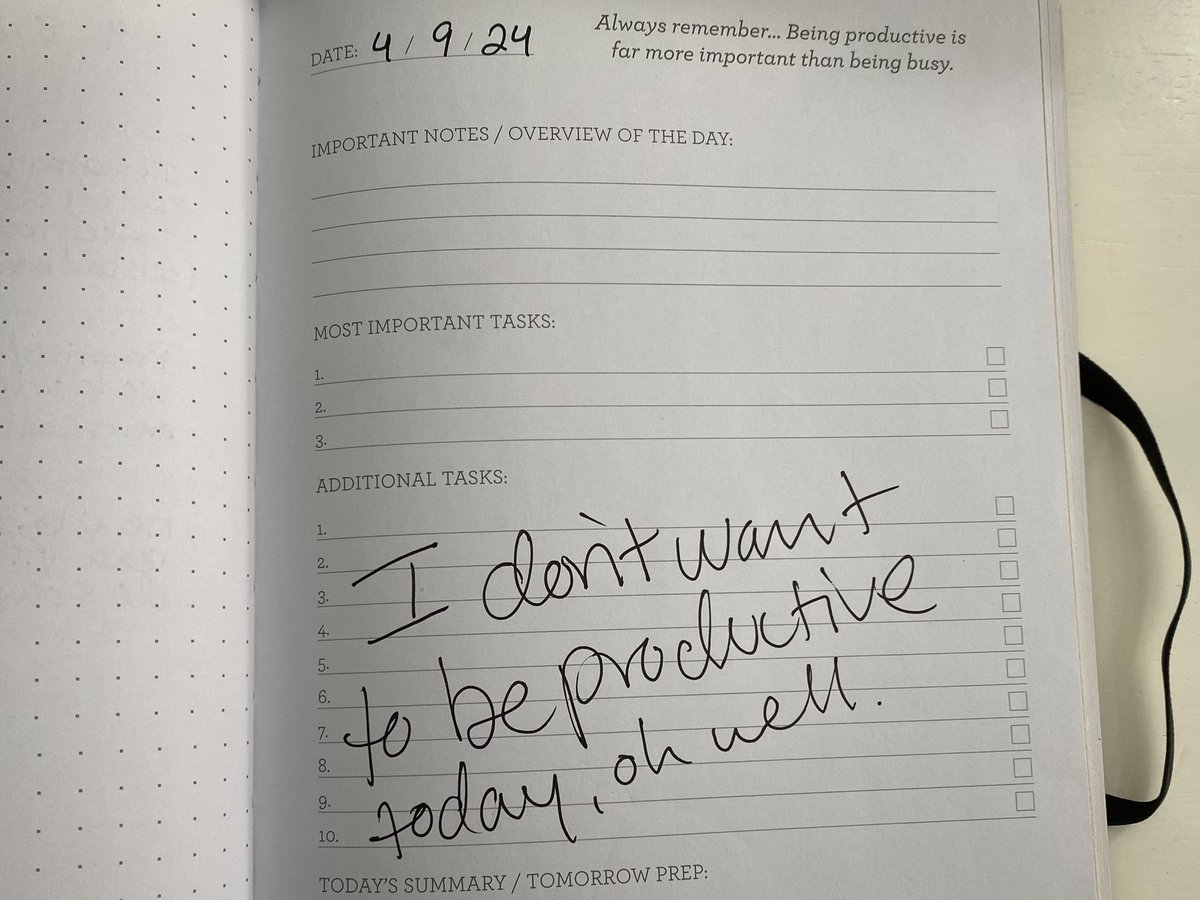 DATE: 4 / 9 / 24
Always remember... Being productive is
far more important than being busy.
IMPORTANT NOTES / OVERVIEW OF THE DAY:
MOST IMPORTANT TASKS:
1.
2.
3.
ADDITIONAL TASKS:
1.
2.
3.
4.
5.
6.
7.
8.
9.
10.
I don't want
to be productive
today, oh well.
TODAY'S SUMMARY / TOMORROW PREP: